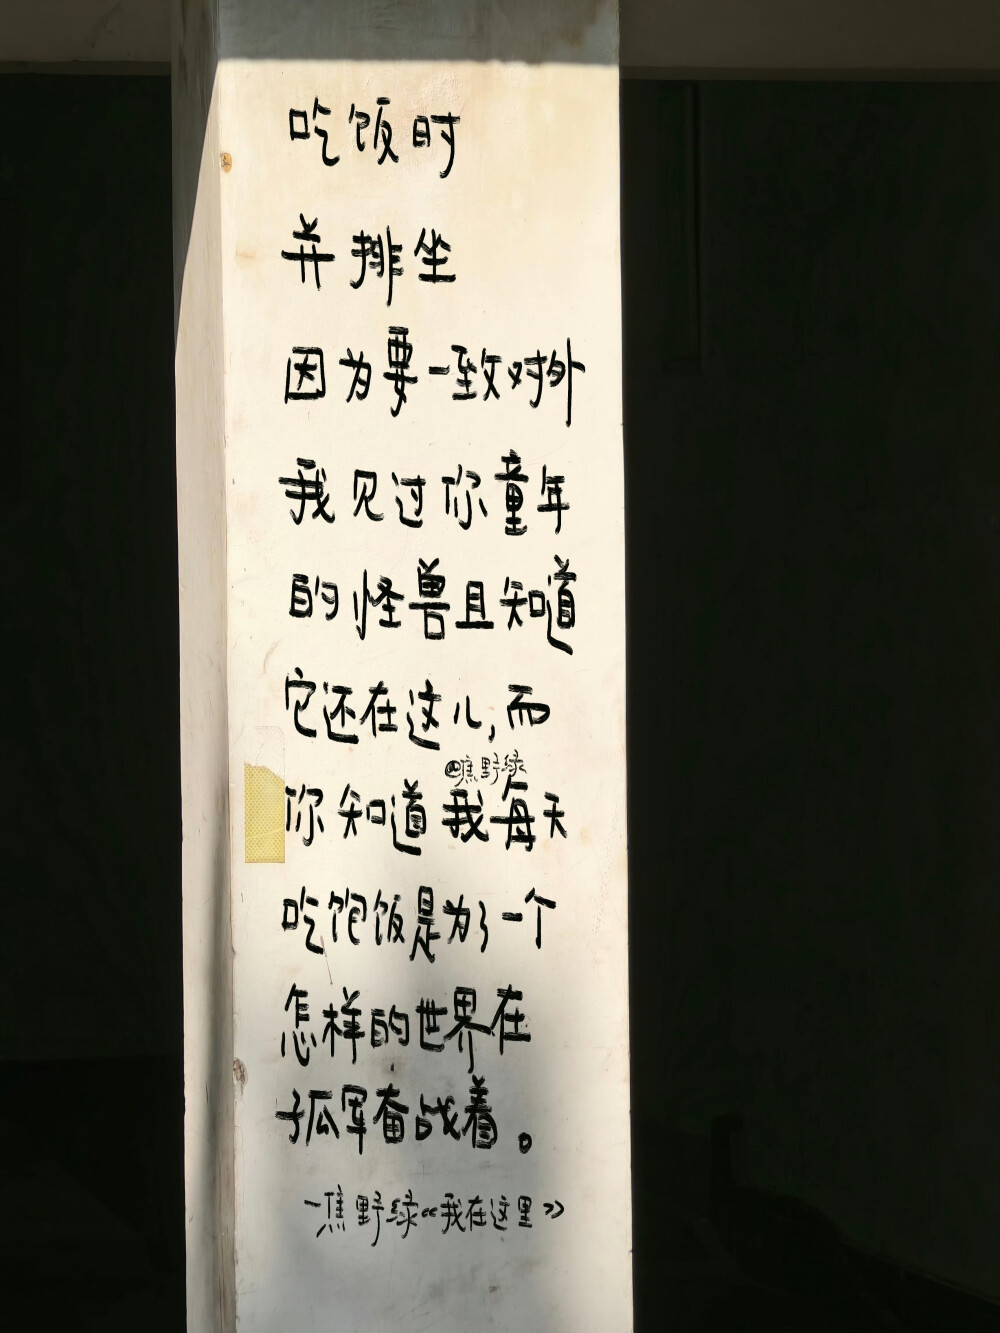 吃饭时
并排坐
因为要一致对外
我见过你童年
的怪兽且知道
它还在这儿,而
@焦野绿
你知道我每天
吃饱饭是为了一个
怎样的世界在
孤军奋战着。
—焦野绿《我在这里》